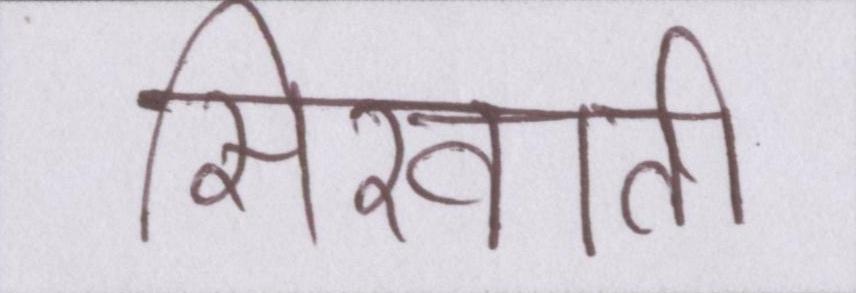 सिखाती